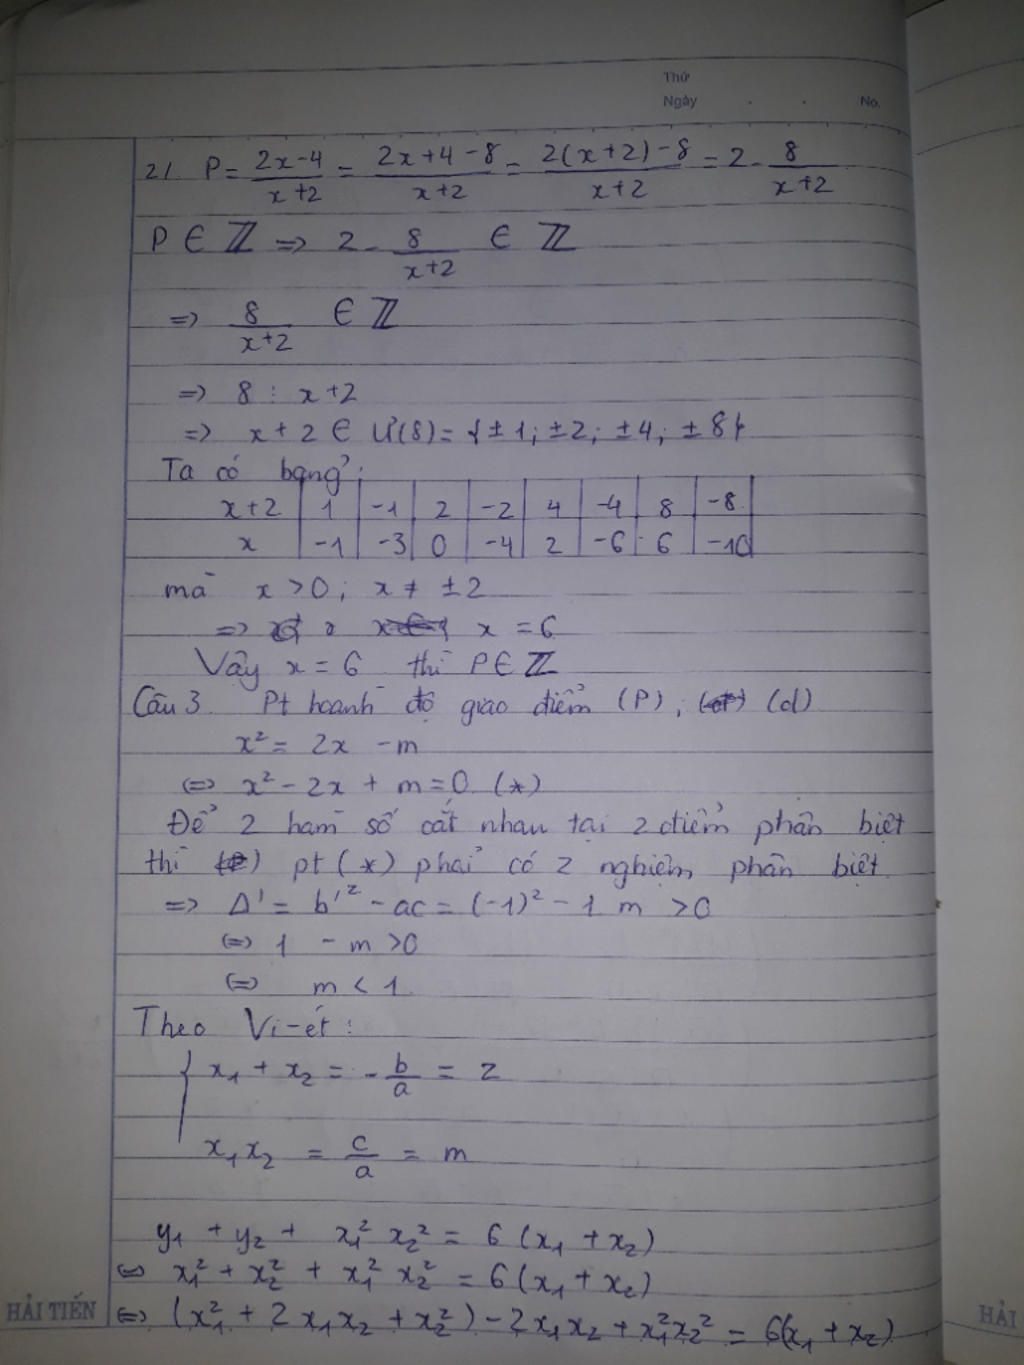 Thứ
Ngày . . No.
2/. P = (2x-4)/(x+2) = (2x+4-8)/(x+2) = (2(x+2)-8)/(x+2) = 2 - 8/(x+2)
P ∈ ℤ => 2 - 8/(x+2) ∈ ℤ
=> 8/(x+2) ∈ ℤ
=> 8 ⋮ x+2
=> x+2 ∈ Ư(8) = {±1; ±2; ±4; ±8}
Ta có bảng:
x+2 | 1 | -1 | 2 | -2 | 4 | -4 | 8 | -8
x | -1 | -3 | 0 | -4 | 2 | -6 | 6 | -10
mà x > 0; x ≠ ±2
=> x = 6
Vậy x = 6 thì P ∈ ℤ
Câu 3. Pt hoành độ giao điểm (P); (d)
x² = 2x - m
<=> x² - 2x + m = 0 (*)
Để 2 hàm số cắt nhau tại 2 điểm phân biệt
thì pt (*) phải có 2 nghiệm phân biệt
=> Δ' = b'² - ac = (-1)² - 1 m > 0
<=> 1 - m > 0
<=> m < 1
Theo Vi-ét:
{ x₁ + x₂ = -b/a = 2
x₁x₂ = c/a = m
y₁ + y₂ + x₁² x₂² = 6 (x₁ + x₂)
<=> x₁² + x₂² + x₁² x₂² = 6 (x₁ + x₂)
<=> (x₁² + 2x₁x₂ + x₂²) - 2x₁x₂ + x₁²x₂² = 6(x₁ + x₂)
HẢI TIẾN
HẢI